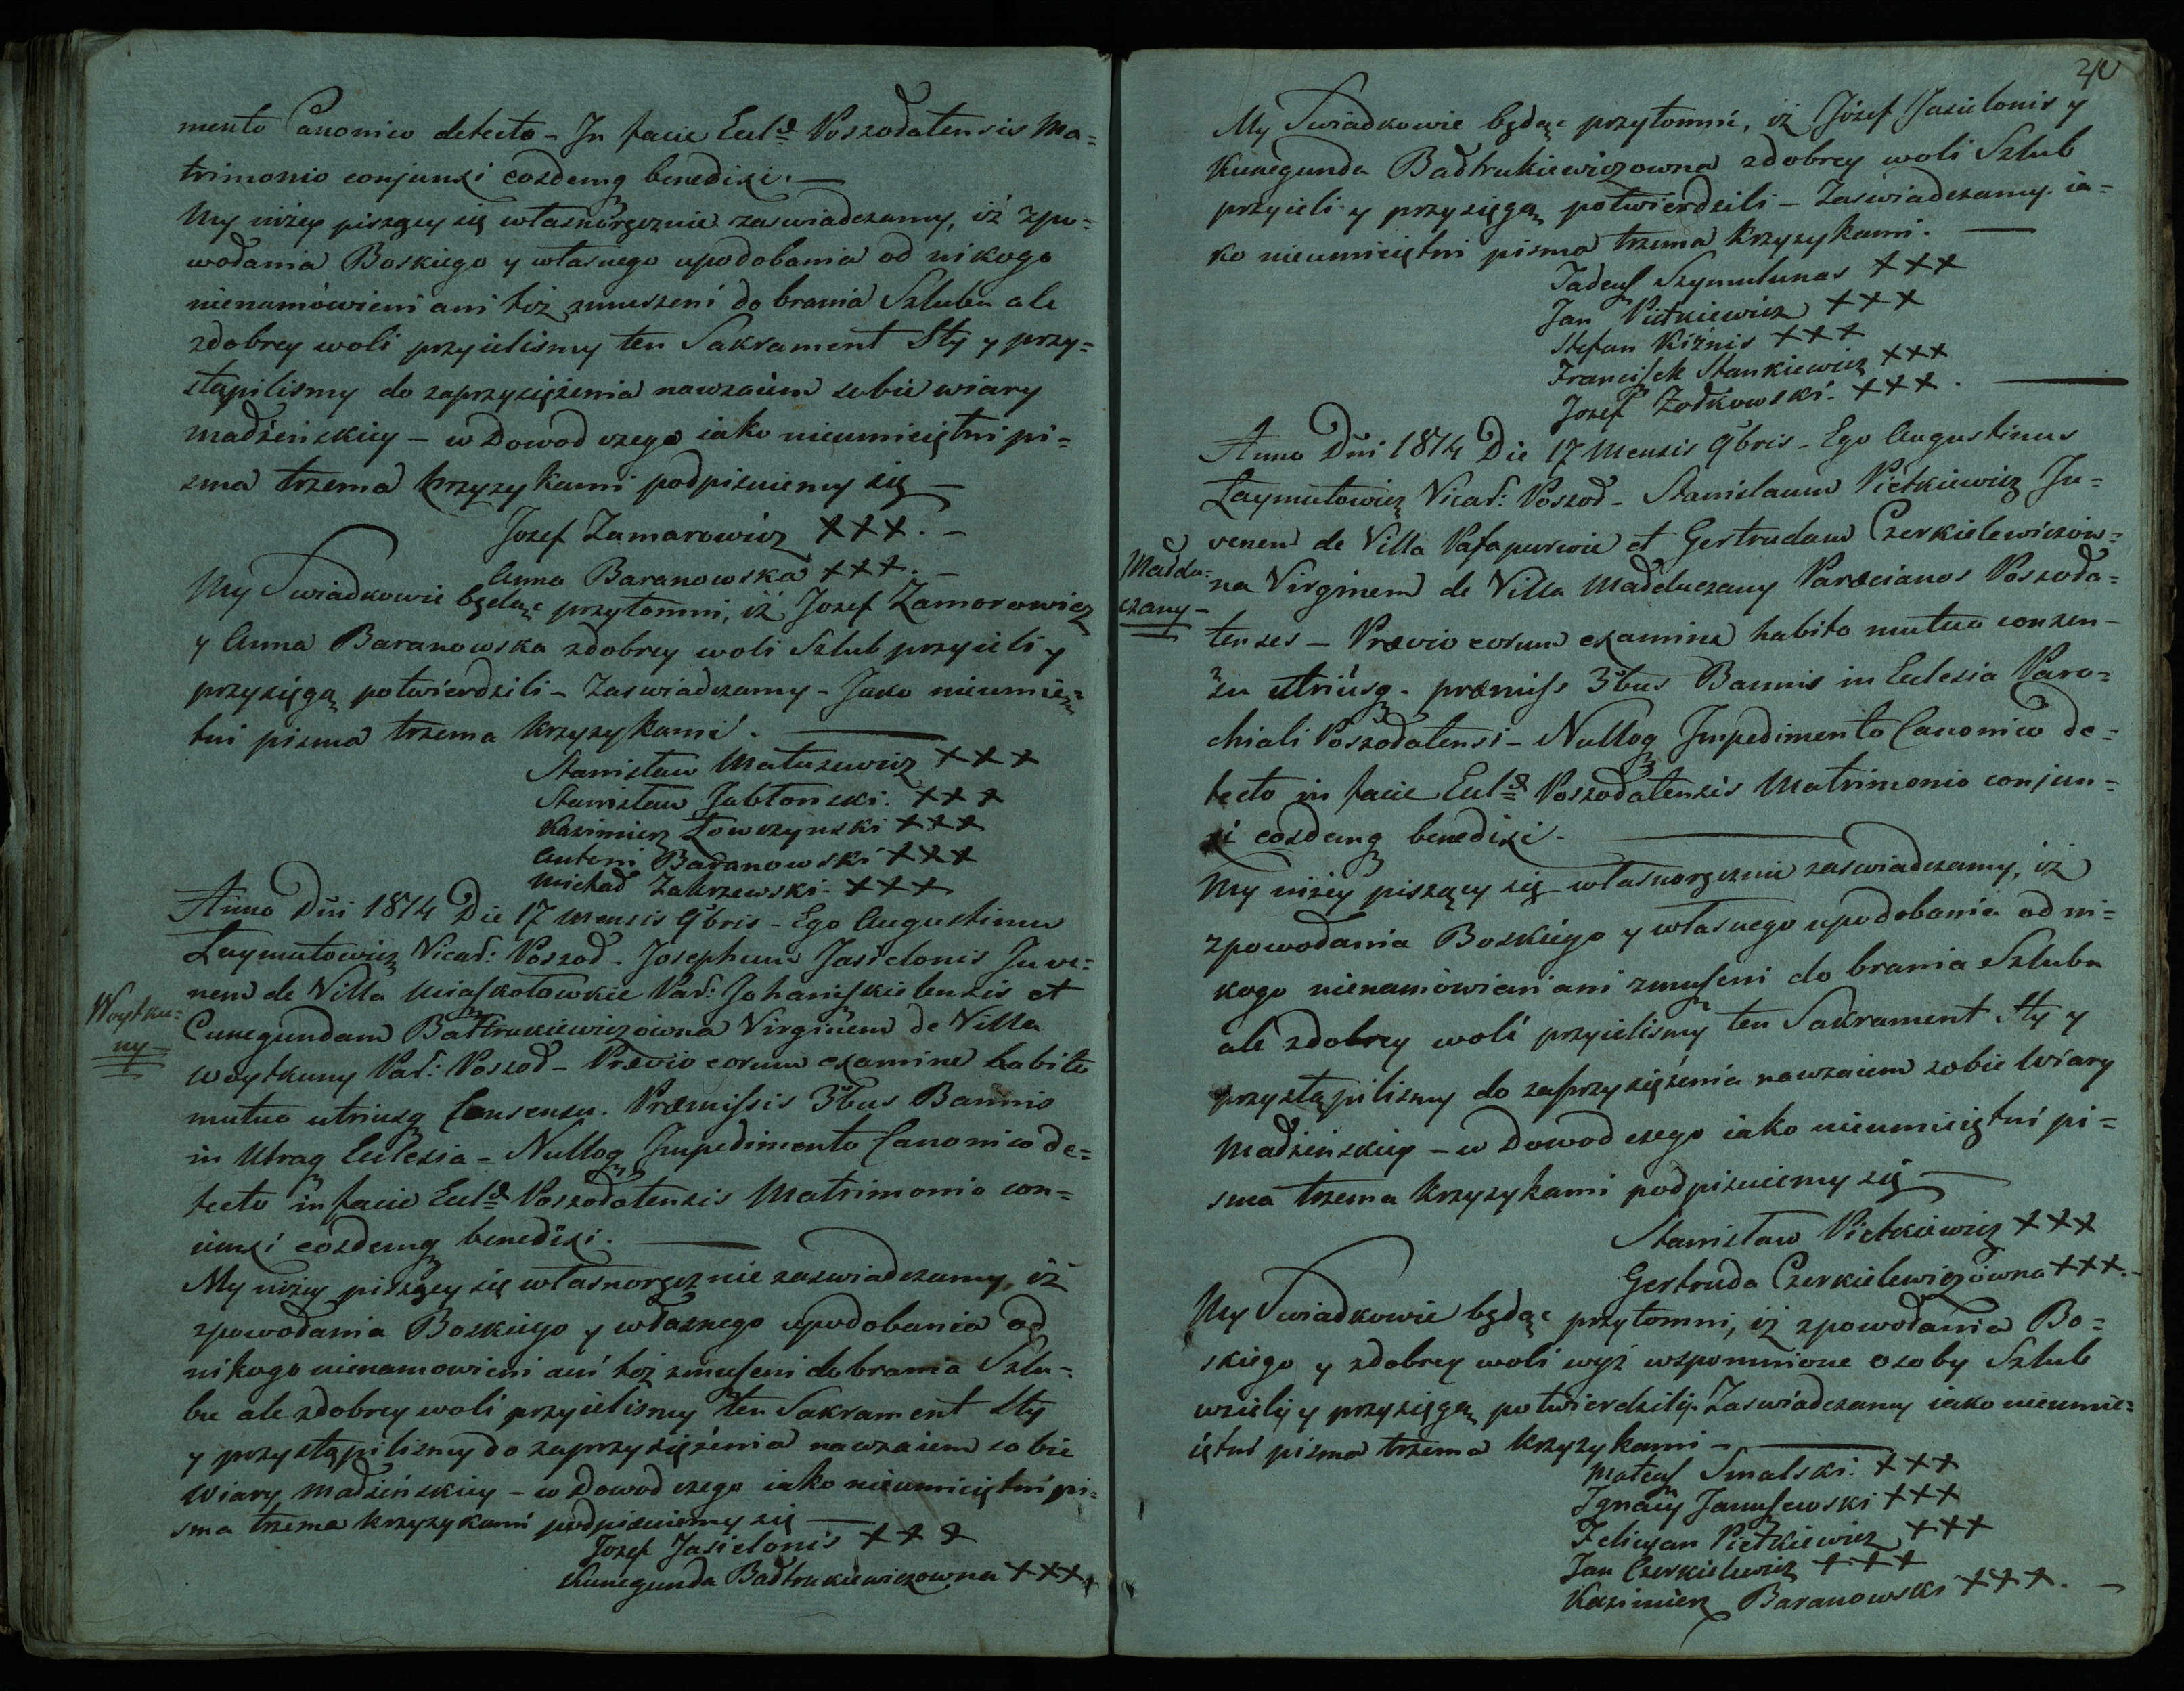 mento Canonico detecto - In facie Eccl̃æ Poszodatensis Ma=
trimonio conjunxi eosdemq benedixi. —
My niżey piszący się własnoręcznie zaswiadczamy, iż zpo=
wodania Boskiego y własnego upodobania od nikogo
nienamówieni ani też zmuszeni do brania Szlubu ale
zdobrey woli przyielismy ten Sakrament Sty y przy=
stąpilismy do zaprzysiężenia nawzaiem sobie wiary
madżeńskiey — w Dowod czego iako nieumieiętni pi=
sma trzema krzyzykami podpisuiemy się —
Jozef Zamarowicz XXX. —
Anna Baranowska XXX. —
My Swiadkowie będąc przytomni, iż Jozef Zamorowicz
y Anna Baranowska zdobrey woli Szlub przyieli y
przysięgą potwierdzili — Zaswiadczamy - Jako nieumieię=
tni pisma trzema krzyzykami. —
Stanisław Matuzewicz XXX
Stanisław Jabłonski. XXX
Kazimierz Łowczynski XXX
Antoni Baranowski XXX
Michał Zakrzewski. XXX
Anno Dñi 1814 Die 17 Mensis 9bris - Ego Augustinus
Laymutowicz Vicar: Poszod - Josephum Jasielonis Juve=
nem de Villa Miaskotowkie Par: Johaniskielensis et
Woytku=
ny
Cunegundam Bałtrukiewiczowna Virginem de Villa
Woytkuny Par: Poszod - Prævio eorum examine habito
mutuo utriusq Consensu. Præmissis 3bus Bannis
in Utraq Eclesia - Nulloq Impedimento Canonico de=
tecto in facie Eccl̃æ Poszodatensis Matrimonio con=
iunxi eosdemq benedixi. —
My niżey piszący się własnoręcznie zaswiadczamy, iż
zpowodania Boskiego y własnego upodobania od
nikogo nienamowieni ani też zmuseni do brania Szlu=
bu ale zdobrey woli przyielismy ten Sakrament Sty
y przystąpilismy do zaprzysiężenia nawzaiem sobie
Wiary madzeńskiey — w Dowod czego iako nieumieiętni pi=
sma trzema krzyzykami podpisuiemy się —
Jozef Jasielonis XXX
Kunegunda Bałtrukiewiczowna XXX.
20
My Swiadkowie będąc przytomni, iż Józef Jasielonis y
Kunegunda Bałtrukiewiczowna zdobrey woli Szlub
przyieli y przysięgą potwierdzili — Zaswiadczamy ia=
ko nieumieiętni pisma trzema krzyzykami. —
Tadeusz Szymulunas XXX
Jan Pietkiewicz XXX
Stefan Kiżnis XXX
Francisek Stankiewicz XXX
Jozef Zodkowski. XXX. —
Anno Dñi 1814 Die 17 Mensis 9bris - Ego Augustinus
Laymutowicz Vicar: Poszod - Stanislaum Pietkiewicz Ju=
venem de Villa Patapurwie et Gertrudam Czerkielewiczow=
Maddu=
czany —
na Virginem de Villa Madduczany Parœcianos Poszoda=
tenses — Prævio eorum examine habito mutuo consen=
su utriusq. præmiss 3bus Bannis in Eclesia Paro=
chiali Poszodatensi — Nulloq Impedimento Canonico de=
tecto in facie Eccl̃æ Poszodatensis Matrimonio conjun=
xi eosdemq benedixi. —
My niżey piszący się własnoręcznie zaswiadczamy, iż
zpowodania Boskiego y własnego upodobania od ni=
kogo nienamówieni ani zmuseni do brania Szlubu
ale zdobrey woli przyielismy ten Sakrament Sty y
przystąpilismy do zaprzysiężenia nawzaiem sobie Wiary
Madzenskiey — w Dowod czego iako nieumieiętni pi=
sma trzema krzyzykami podpisuiemy się —
Stanisław Pietkiewicz XXX
Gertruda Czerkielewiczówna XXX. —
My Swiadkowie będąc przytomni, iż zpowodania Bo=
skiego y zdobrey woli wyż wspomnione osoby Szlub
wzieły y przysięgą potwierdziły. Zaswiadczamy iako nieumie=
iętni pisma trzema krzyzykami — —
Mateusz Smalski. XXX
Ignacy Janusewski XXX
Felicyan Pietkiewicz XXX
Jan Czerkielewicz XXX
Kazimierz Baranowski XXX. —